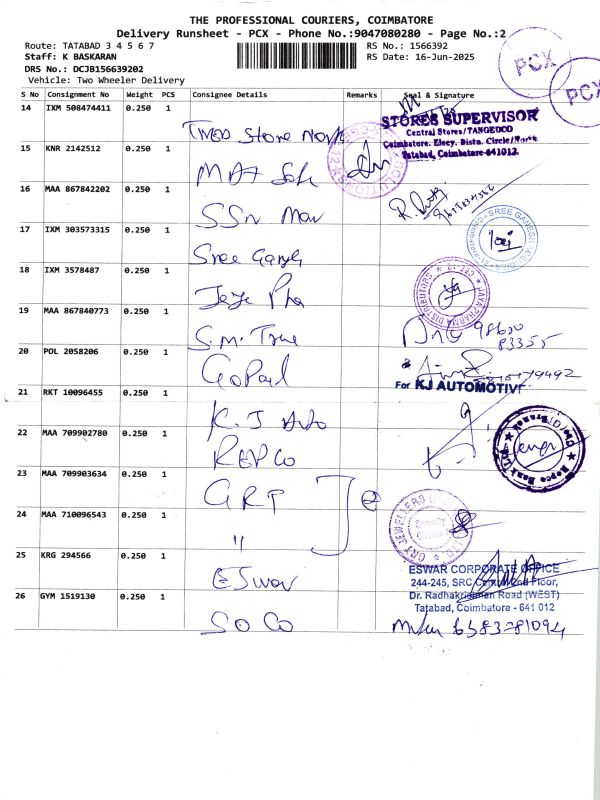 THE PROFESSIONAL COURIERS, COIMBATORE
Delivery Runsheet - PCX - Phone No.:9047080280 - Page No.:2
Route: TATABAD 3 4 5 6 7
RS No.: 1566392
Staff: K BASKARAN
RS Date: 16-Jun-2025
DRS No.: DCJB156639202
Vehicle: Two Wheeler Delivery
PCX
PCX
S No Consignment No Weight PCS Consignee Details Remarks Seal & Signature
14 IXM 508474411 0.250 1
Store
STORES SUPERVISOR
Central Stores/TANGEDCO
Coimbatore. Elecy. Distn. Circle/North
Tatabad, Coimbatore-641012.
15 KNR 2142512 0.250 1
16 MAA 867842202 0.250 1
SSN
17 IXM 303573315 0.250 1
Sree Ganesh
SREE GANESH
18 IXM 3578487 0.250 1
Jaya Pha
JAYA PHARMA DISTRIBUTORS CBE-12
19 MAA 867840773 0.250 1
S.M.
98650
83355
20 POL 2058206 0.250 1
Gopal
For KJ AUTOMOTIVE
21 RKT 10096455 0.250 1
K.J Auto
22 MAA 709902780 0.250 1
REPCO
Repco Bank
23 MAA 709903634 0.250 1
GRT
24 MAA 710096543 0.250 1
"
GRT JEWELLERS
Security
25 KRG 294566 0.250 1
Eswar
ESWAR CORPORATE OFFICE
244-245, SRC 2nd Floor,
Dr. Radhakrishnan Road (WEST)
Tatabad, Coimbatore - 641 012
26 GYM 1519130 0.250 1
SO CO
6383781094